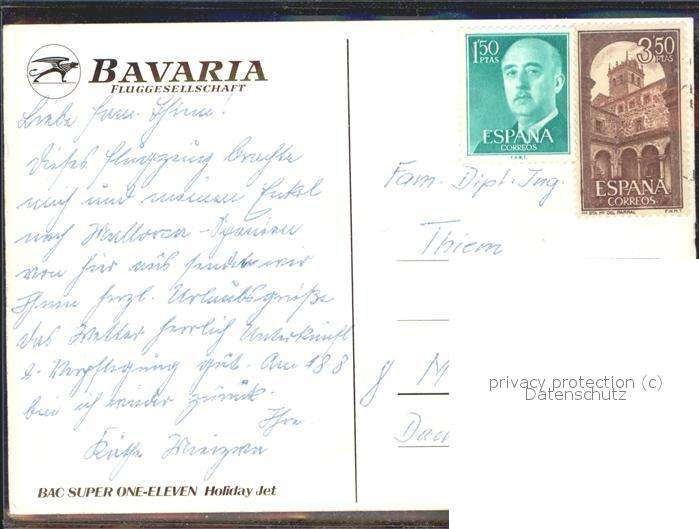 BAVARIA
FLUGGESELLSCHAFT
Liebe Fam. Thiem!
Dieses Flugzeug brachte
mich und meinen Enkel
nach Mallorca - Spanien
von hier aus senden wir
Ihnen herzl. Urlaubsgrüße
das Wetter herrlich Unterkunft
u. Verpflegung gut. Am 18.8
bin ich wieder zurück.
Ihre
Käthe
BAC SUPER ONE-ELEVEN Holiday Jet
1'50
PTAS
ESPAÑA
CORREOS
F.N.M.T.
3,50
PTAS
ESPAÑA
CORREOS
Mº STA. Mª DEL PARRAL F.N.M.T.
Fam. Dipl. Ing.
Thiem
8 M
Dac
privacy protection (c)
Datenschutz